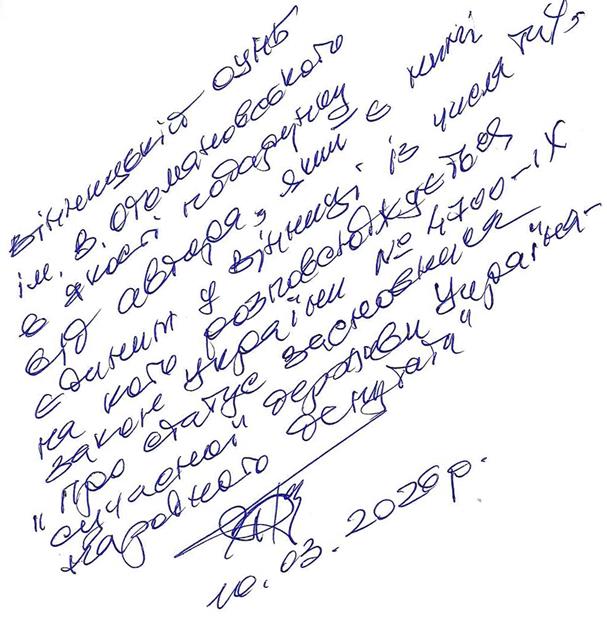 Вінницькій ОУНБ
ім. В. Отамановського
в якості подарунку
від автора, який є нині
єдиним у Вінниці із числа тих,
на кого розповсюджується
закон України № 4700-ІХ
"Про статус засновника
сучасної держави Україна-
народного депутата"
10.03.2026 р.